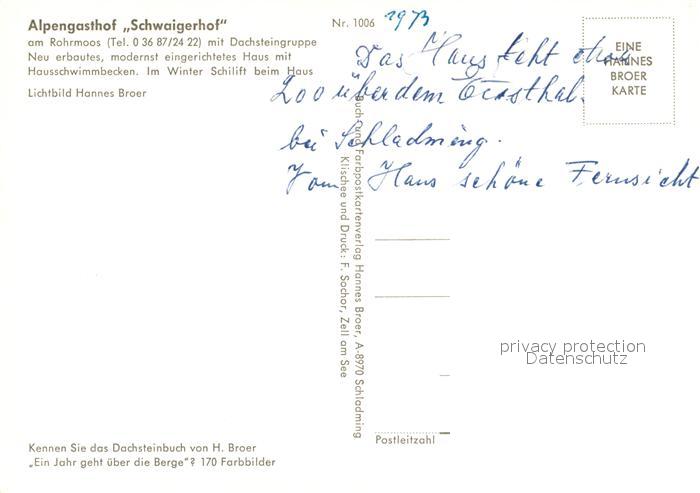 Alpengasthof „Schwaigerhof“
am Rohrmoos (Tel. 0 36 87/24 22) mit Dachsteingruppe
Neu erbautes, modernst eingerichtetes Haus mit
Hausschwimmbecken. Im Winter Schilift beim Haus
Lichtbild Hannes Broer
Nr. 1006
1973
Das Haus steht etwa
200 über dem Ennsthal
bei Schladming.
Vom Haus schöne Fernsicht
EINE
HANNES
BROER
KARTE
Buch und Farbpostkartenverlag Hannes Broer, A-8970 Schladming
Klischee und Druck: F. Sochor, Zell am See
privacy protection
Datenschutz
Postleitzahl
Kennen Sie das Dachsteinbuch von H. Broer
„Ein Jahr geht über die Berge“? 170 Farbbilder